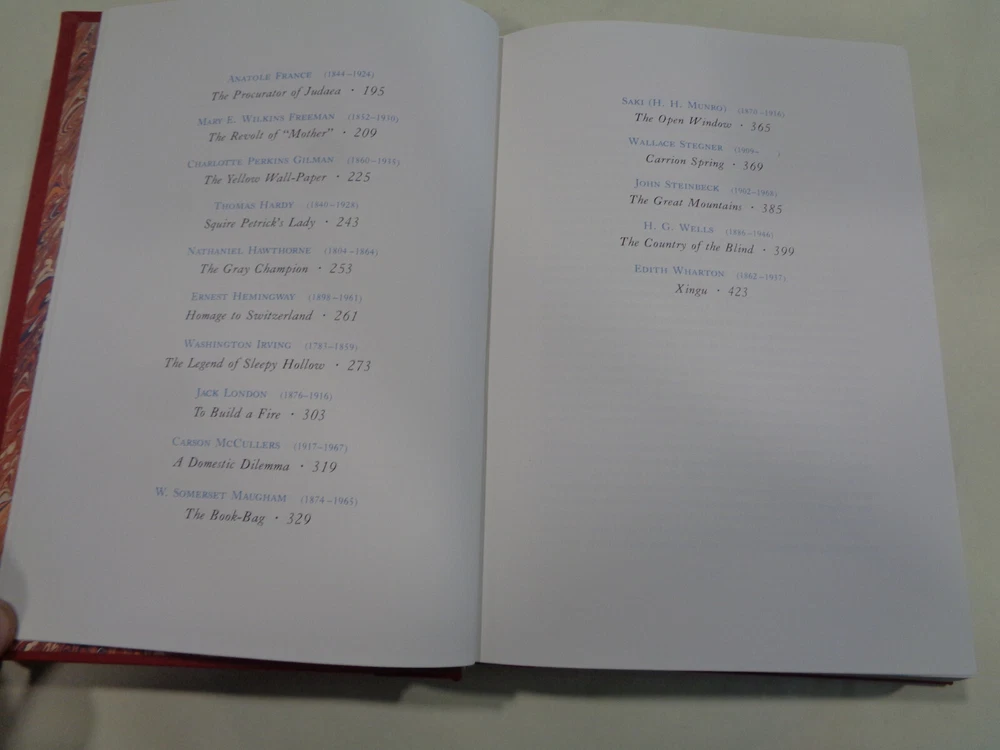 ANATOLE FRANCE (1844–1924)
The Procurator of Judaea · 195
MARY E. WILKINS FREEMAN (1852–1930)
The Revolt of "Mother" · 209
CHARLOTTE PERKINS GILMAN (1860–1935)
The Yellow Wall-Paper · 225
THOMAS HARDY (1840–1928)
Squire Petrick's Lady · 243
NATHANIEL HAWTHORNE (1804–1864)
The Gray Champion · 253
ERNEST HEMINGWAY (1898–1961)
Homage to Switzerland · 261
WASHINGTON IRVING (1783–1859)
The Legend of Sleepy Hollow · 273
JACK LONDON (1876–1916)
To Build a Fire · 303
CARSON MCCULLERS (1917–1967)
A Domestic Dilemma · 319
W. SOMERSET MAUGHAM (1874–1965)
The Book-Bag · 329
SAKI (H. H. MUNRO) (1870–1916)
The Open Window · 365
WALLACE STEGNER (1909– )
Carrion Spring · 369
JOHN STEINBECK (1902–1968)
The Great Mountains · 385
H. G. WELLS (1886–1946)
The Country of the Blind · 399
EDITH WHARTON (1862–1937)
Xingu · 423